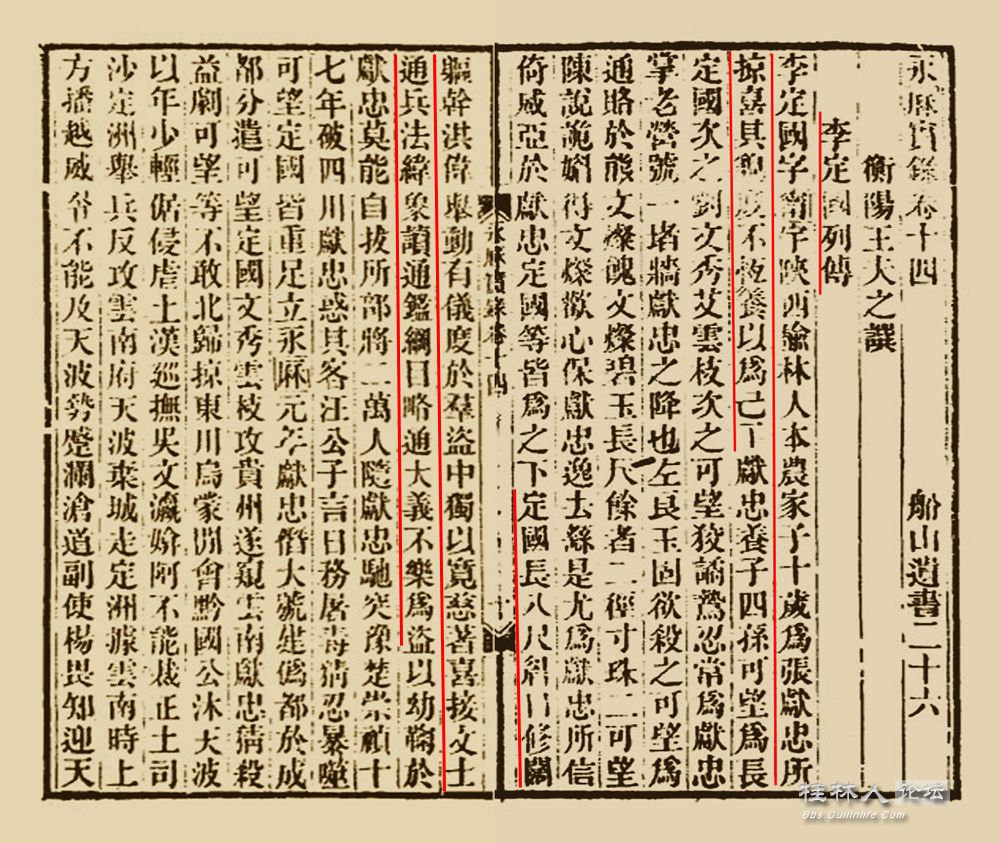 永曆實錄卷十四 船山遺書二十六
衡陽王夫之譔
李定國列傳
李定國字甯宇陝西榆林人本農家子十歲爲張獻忠所
掠喜其貌不恆養以爲己子獻忠養子四孫可望爲長
定國次之劉文秀艾雲枝次之可望狡譎鷙忍常爲獻忠
掌老營號一堵牆獻忠之降也左良玉固欲殺之可望爲
通賂於熊文燦餽文燦碧玉長尺餘者二徑寸珠二可望
陳說詭媚得文燦歡心保獻忠逸去繇是尤爲獻忠所信
倚威亞於獻忠定國等皆爲之下定國長八尺眉目修闊
軀幹洪偉舉動有儀度於羣盜中獨以寬慈著喜接文士
通兵法緯象讀通鑑綱目略通大義不樂爲盜以幼鞠於
獻忠莫能自拔所部將二萬人隨獻忠馳突豫楚崇禎十
七年破四川獻忠惑其客汪公子言日務屠毒猜忍暴噬
可望定國皆重足立永曆元年獻忠僭大號建僞都於成
都分遣可望定國文秀雲枝攻貴州遂窺雲南獻忠猜殺
益劇可望等不敢北歸掠東川烏蒙閒會黔國公沐天波
以年少輕倨侵虐土漢巡撫吳文瀛媕阿不能裁正土司
沙定洲舉兵反攻雲南府天波棄城走定洲據雲南時上
方播越威令不能及天波勢蹙瀾滄道副使楊畏知迎天
永曆實錄卷十四
十一
桂林人论坛
Bbs.Guilinlife.Com